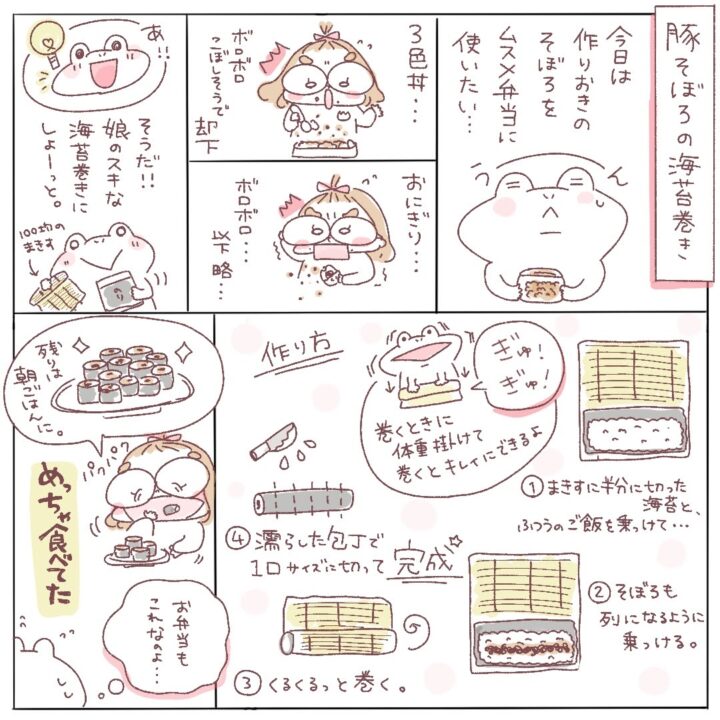 豚そぼろの海苔巻き
今日は
作りおきの
そぼろを
ムスメ弁当に
使いたい…
うーん
3色丼…
ボロボロ
こぼしそうで
却下
おにぎり…
ボロボロ…
以下略…
あ!!
そうだ!!
娘のスキな
海苔巻きに
しよーっと。
100均の
まきす
のり
作り方
①まきすに半分に切った
海苔と、
ふつうのご飯を乗っけて…
②そぼろも
列になるように
乗っける。
ぎゅ!
ぎゅ!
巻くときに
体重掛けて
巻くとキレイにできるよ
③くるくるっと巻く。
④濡らした包丁で
1口サイズに切って完成☆
残りは
朝ごはんに。
パクパク
めっちゃ食べてた
お弁当も
これなのよ…